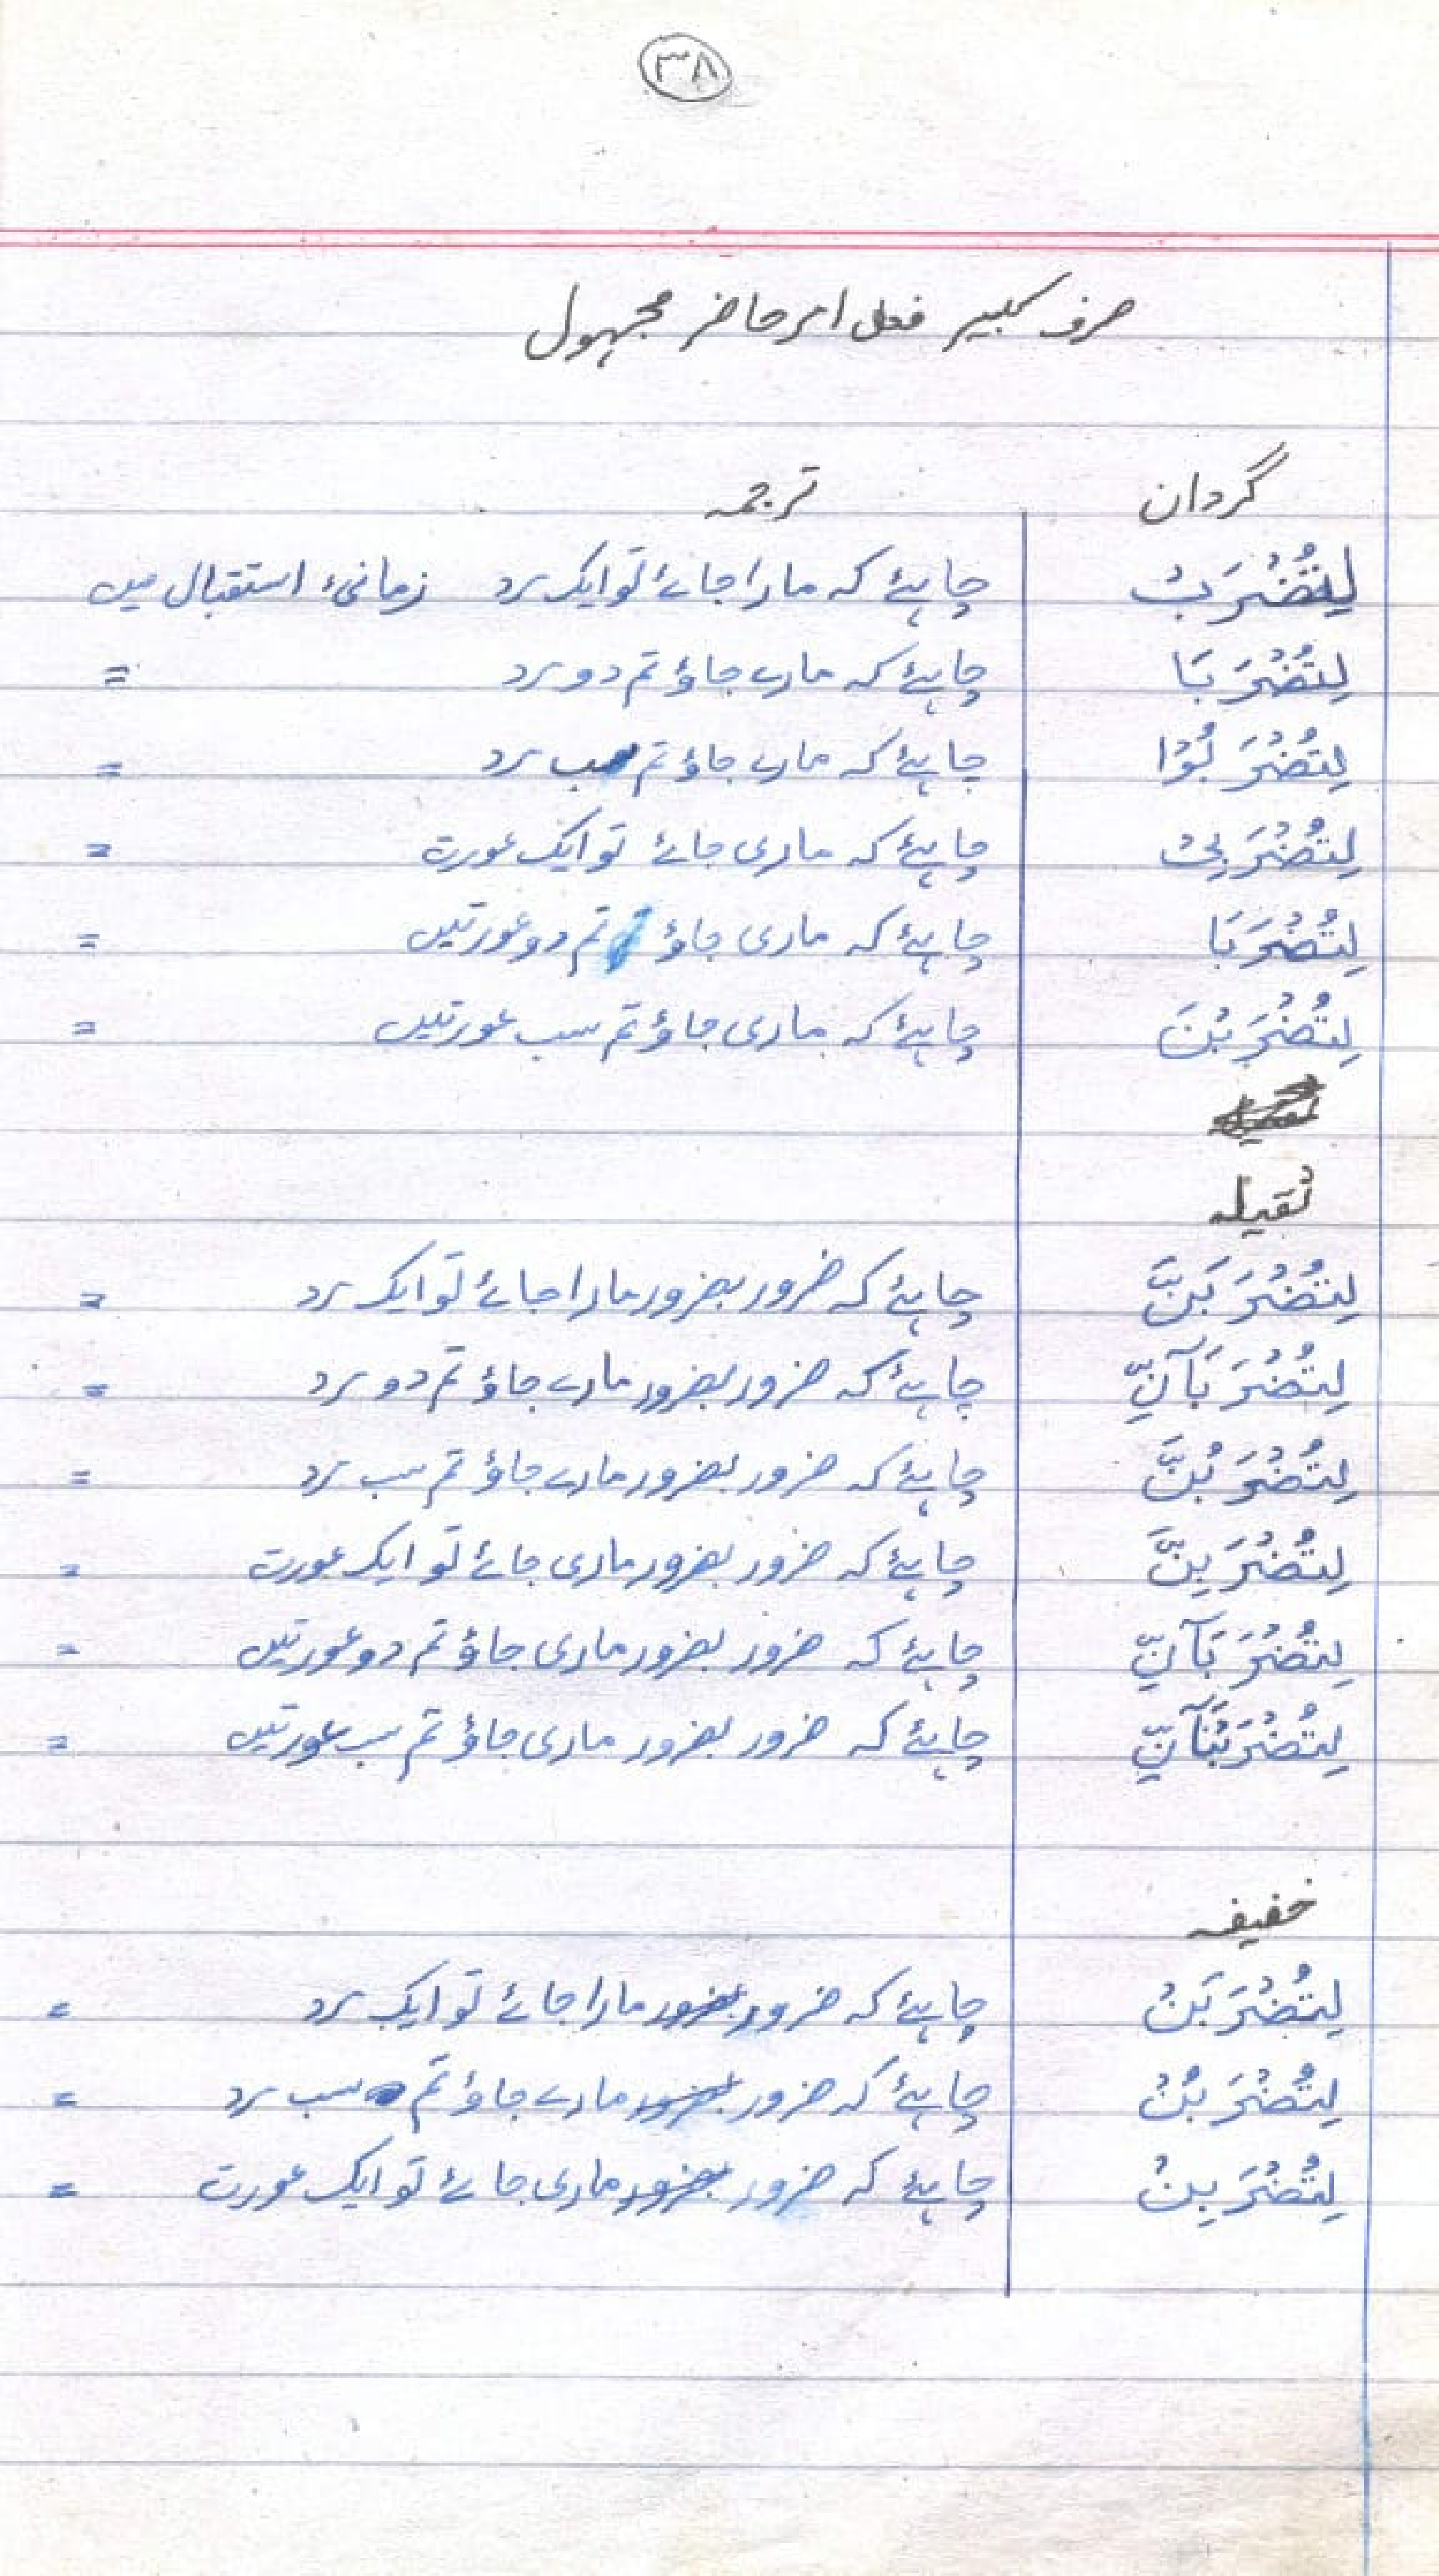 ٣٨
صرف کبیر فعل امر حاضر مجہول
گردان ترجمہ
لِتُضْرَبْ چاہئے کہ مارا جائے تو ایک مرد زمانۂ استقبال میں
لِتُضْرَبَا چاہئے کہ مارے جاؤ تم دو مرد =
لِتُضْرَبُوْا چاہئے کہ مارے جاؤ تم سب مرد =
لِتُضْرَبِیْ چاہئے کہ ماری جائے تو ایک عورت =
لِتُضْرَبَا چاہئے کہ ماری جاؤ تم دو عورتیں =
لِتُضْرَبْنَ چاہئے کہ ماری جاؤ تم سب عورتیں =
ثقیلہ
لِتُضْرَبَنَّ چاہئے کہ ضرور بضرور مارا جائے تو ایک مرد =
لِتُضْرَبَآنِّ چاہئے کہ ضرور بضرور مارے جاؤ تم دو مرد =
لِتُضْرَبُنَّ چاہئے کہ ضرور بضرور مارے جاؤ تم سب مرد =
لِتُضْرَبِنَّ چاہئے کہ ضرور بضرور ماری جائے تو ایک عورت =
لِتُضْرَبَآنِّ چاہئے کہ ضرور بضرور ماری جاؤ تم دو عورتیں =
لِتُضْرَبْنَآنِّ چاہئے کہ ضرور بضرور ماری جاؤ تم سب عورتیں =
خفیفہ
لِتُضْرَبَنْ چاہئے کہ ضرور مارا جائے تو ایک مرد =
لِتُضْرَبُنْ چاہئے کہ ضرور مارے جاؤ تم سب مرد =
لِتُضْرَبِنْ چاہئے کہ ضرور ماری جائے تو ایک عورت =